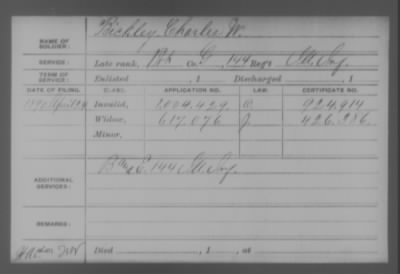 NAME OF SOLDIER: Bickley, Charles W.
SERVICE: Late rank, Pvt Co. G, 144 Reg't Ill. Inf.
TERM OF SERVICE: Enlisted , 1 Discharged , 1
DATE OF FILING. CLASS. APPLICATION NO. LAW. CERTIFICATE NO.
1890 April 29 Invalid, 1.004.429 924.914
Widow, 617.076 426.286.
Minor,
ADDITIONAL SERVICES: 144 Ill Inf.
REMARKS:
Died , 1 , at